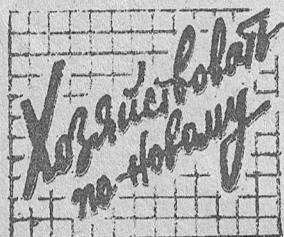 Хозяйствовать
по-новому